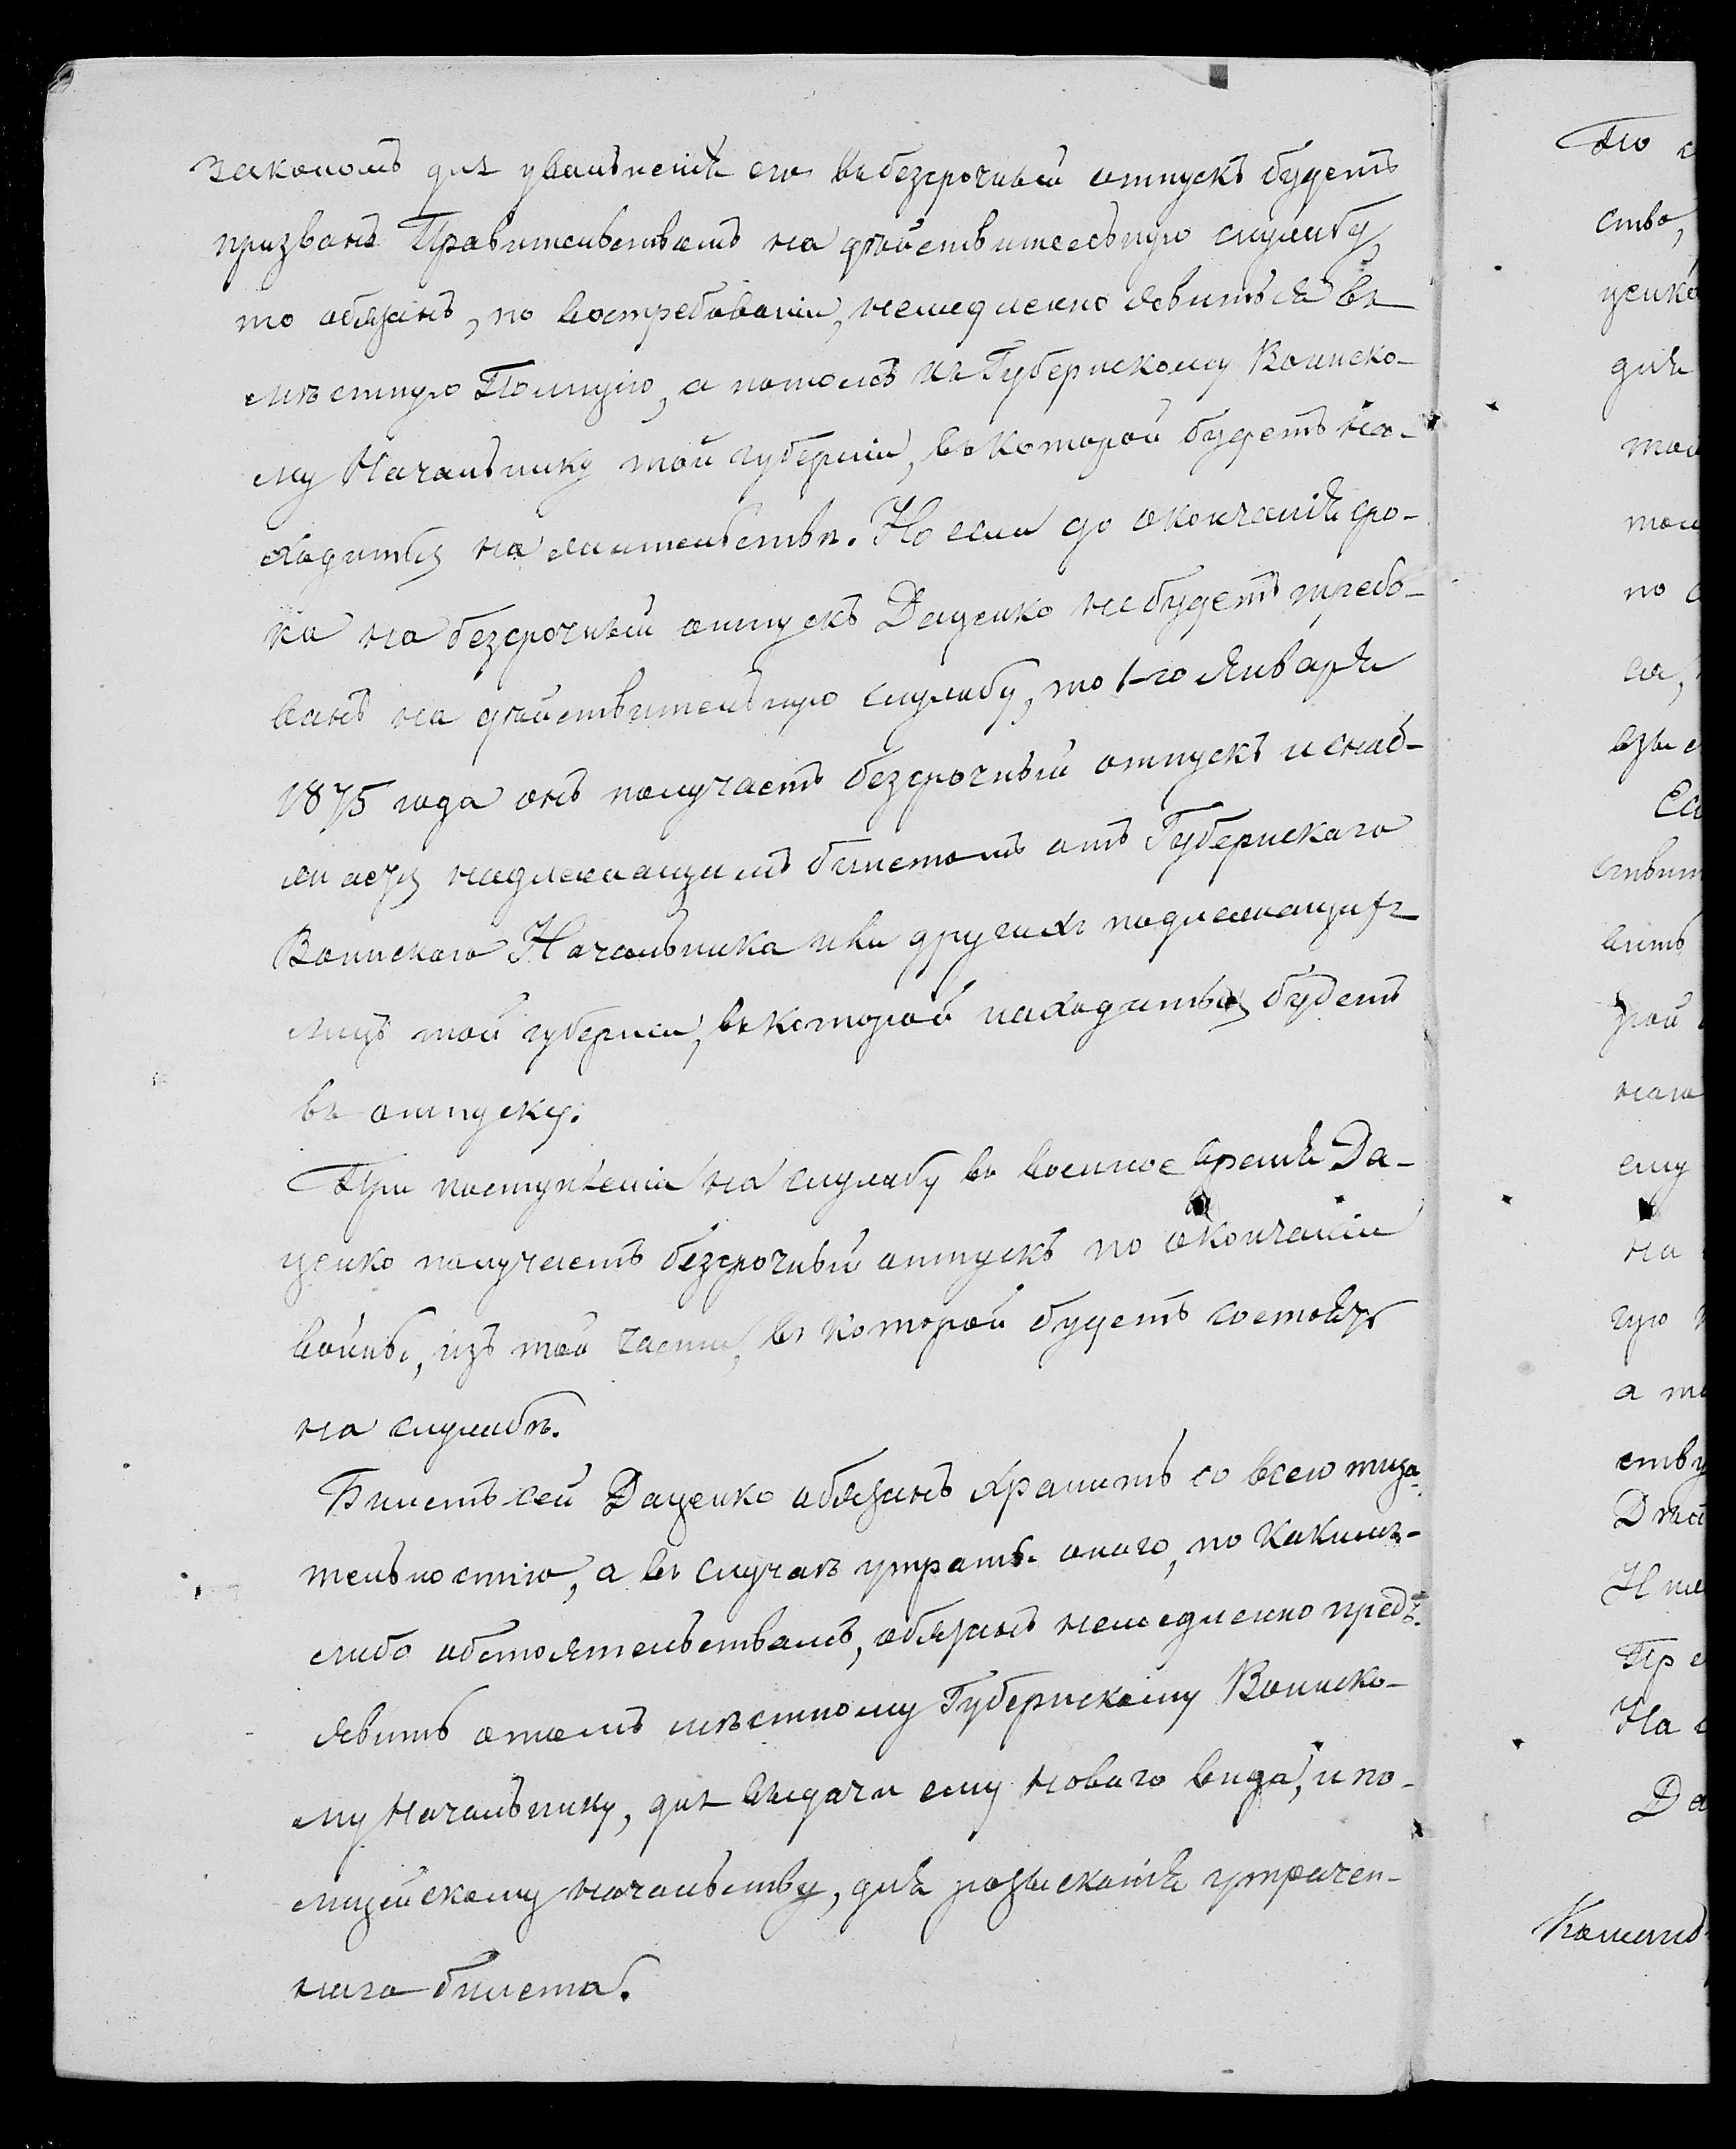 закономъ для увольненія его въ безсрочный отпускъ будетъ
призванъ Правительствомъ на дѣйствительную службу,
то обязанъ, по востребованіи, немедленно явиться въ
мѣстную Полицію, а потомъ къ Губернскому Воинско-
му Начальнику той губерніи, въ которой будетъ на-
ходиться на жительствѣ. Но если до окончанія сро-
ка на безсрочный отпускъ Даценко не будетъ требо-
ванъ на дѣйствительную службу, то 1-го Января
1875 года онъ получаетъ безсрочный отпускъ и снаб-
жается надлежащимъ билетомъ отъ Губернскаго
Воинскаго Начальника или другихъ подлежащихъ
лицъ той губерніи, въ которой находиться будетъ
въ отпуску.
При поступленіи на службу въ военное время Да-
ценко получаетъ безсрочный отпускъ по окончаніи
войны, изъ той части, въ которой будетъ состоять
на службѣ.
Билетъ сей Даценко обязанъ хранить со всею тща-
тельностію, а въ случаѣ утраты онаго, по какимъ-
либо обстоятельствамъ, обязанъ немедленно предъ-
явить о томъ мѣстному Губернскому Воинско-
му Начальнику, для выдачи ему новаго вида, и по-
лицейскому начальству, для розысканія утрачен-
наго билета.
По
ство,
ценко
для
по
са,
вить
рой
наго
ему
на
гую
а
Пр
На
Да